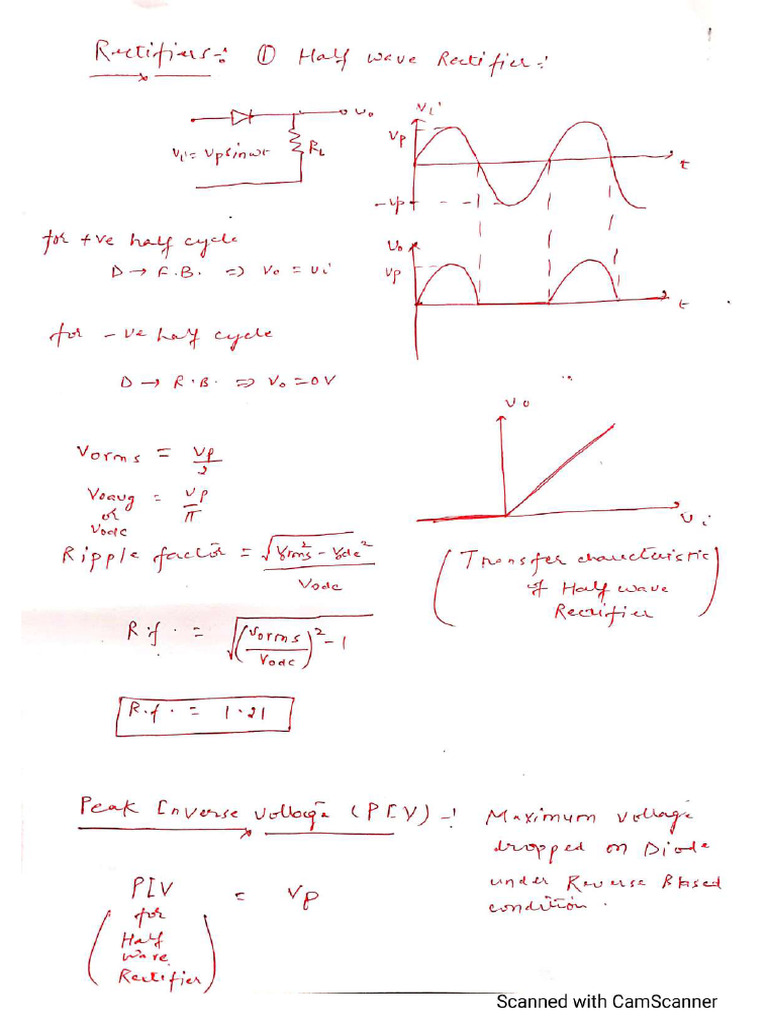 Rectifiers:- ① Half wave Rectifier:-
Vo
Vi = Vpsinωt
RL
Vi
Vp
-Vp
t
for +ve half cycle
D → F.B. ⇒ Vo = Vi
Vo
Vp
t
for -ve half cycle
D → R.B. ⇒ Vo = 0V
Vorms = Vp/2
Voavg or Vodc = Vp/π
Ripple factor = √(Vrms² - Vodc²) / Vodc
R.f. = √((Vorms/Vodc)² - 1)
R.f. = 1.21
Vo
Vi
(Transfer charecteristic
of Half wave
Rectifier)
Peak Inverse Voltage (PIV) -: Maximum voltage
dropped on Diode
under Reverse Biased
condition.
PIV = Vp
(for
Half
wave
Rectifier)
Scanned with CamScanner